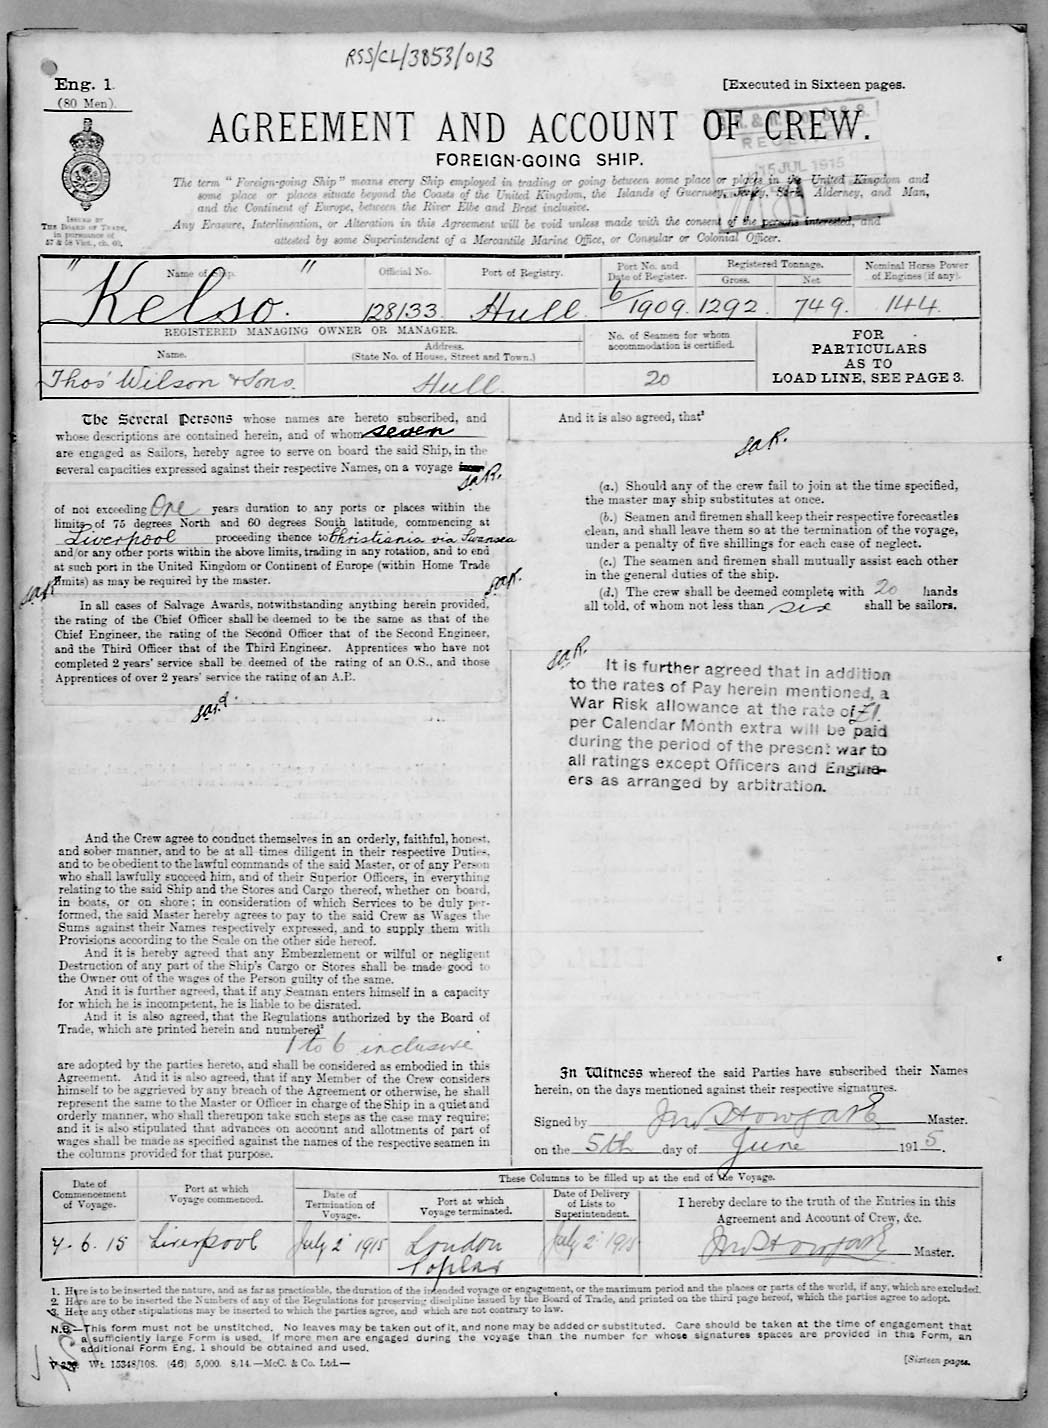 RSS/CL/3853/013
Eng. 1.
(80 Men).
[Executed in Sixteen pages.
AGREEMENT AND ACCOUNT OF CREW.
FOREIGN-GOING SHIP.
RECEIVED
15 JUL 1915
The term "Foreign-going Ship" means every Ship employed in trading or going between some place or places in the United Kingdom and
some place or places situate beyond the Coasts of the United Kingdom, the Islands of Guernsey, Jersey, Sark, Alderney, and Man,
and the Continent of Europe, between the River Elbe and Brest inclusive.
Any Erasure, Interlineation, or Alteration in this Agreement will be void unless made with the consent of the persons interested, and
attested by some Superintendent of a Mercantile Marine Office, or Consular or Colonial Officer.
ISSUED BY
THE BOARD OF TRADE,
in pursuance of
57 & 58 Vict., ch. 60.
Name of Ship.
Official No.
Port of Registry.
Port No. and
Date of Register.
Registered Tonnage.
Gross.
Net
Nominal Horse Power
of Engines (if any).
"Kelso."
128133
Hull
6/1909
1292
749.
144.
REGISTERED MANAGING OWNER OR MANAGER.
Name.
Address.
(State No. of House, Street and Town.)
No. of Seamen for whom
accommodation is certified.
FOR
PARTICULARS
AS TO
LOAD LINE, SEE PAGE 3.
Thos Wilson & Sons.
Hull.
20
The Several Persons whose names are hereto subscribed, and
whose descriptions are contained herein, and of whom seven
are engaged as Sailors, hereby agree to serve on board the said Ship, in the
several capacities expressed against their respective Names, on a voyage
of not exceeding One years duration to any ports or places within the
limits of 75 degrees North and 60 degrees South latitude, commencing at
Liverpool proceeding thence to Christiania via Swansea
and/or any other ports within the above limits, trading in any rotation, and to end
at such port in the United Kingdom or Continent of Europe (within Home Trade
limits) as may be required by the master.
In all cases of Salvage Awards, notwithstanding anything herein provided,
the rating of the Chief Officer shall be deemed to be the same as that of the
Chief Engineer, the rating of the Second Officer that of the Second Engineer,
and the Third Officer that of the Third Engineer. Apprentices who have not
completed 2 years' service shall be deemed of the rating of an O.S., and those
Apprentices of over 2 years' service the rating of an A.B.
And the Crew agree to conduct themselves in an orderly, faithful, honest,
and sober manner, and to be at all times diligent in their respective Duties,
and to be obedient to the lawful commands of the said Master, or of any Person
who shall lawfully succeed him, and of their Superior Officers, in everything
relating to the said Ship and the Stores and Cargo thereof, whether on board,
in boats, or on shore; in consideration of which Services to be duly per-
formed, the said Master hereby agrees to pay to the said Crew as Wages the
Sums against their Names respectively expressed, and to supply them with
Provisions according to the Scale on the other side hereof.
And it is hereby agreed that any Embezzlement or wilful or negligent
Destruction of any part of the Ship's Cargo or Stores shall be made good to
the Owner out of the wages of the Person guilty of the same.
And it is further agreed, that if any Seaman enters himself in a capacity
for which he is incompetent, he is liable to be disrated.
And it is also agreed, that the Regulations authorized by the Board of
Trade, which are printed herein and numbered²
1 to 6 inclusive
are adopted by the parties hereto, and shall be considered as embodied in this
Agreement. And it is also agreed, that if any Member of the Crew considers
himself to be aggrieved by any breach of the Agreement or otherwise, he shall
represent the same to the Master or Officer in charge of the Ship in a quiet and
orderly manner, who shall thereupon take such steps as the case may require;
and it is also stipulated that advances on account and allotments of part of
wages shall be made as specified against the names of the respective seamen in
the columns provided for that purpose.
And it is also agreed, that³
(a.) Should any of the crew fail to join at the time specified,
the master may ship substitutes at once.
(b.) Seamen and firemen shall keep their respective forecastles
clean, and shall leave them so at the termination of the voyage,
under a penalty of five shillings for each case of neglect.
(c.) The seamen and firemen shall mutually assist each other
in the general duties of the ship.
(d.) The crew shall be deemed complete with 20 hands
all told, of whom not less than six shall be sailors.
It is further agreed that in addition
to the rates of Pay herein mentioned, a
War Risk allowance at the rate of £1.
per Calendar Month extra will be paid
during the period of the present war to
all ratings except Officers and Engine-
ers as arranged by arbitration.
In Witness whereof the said Parties have subscribed their Names
herein, on the days mentioned against their respective signatures.
Signed by Master.
on the 5th day of June 1915.
Date of
Commencement
of Voyage.
Port at which
Voyage commenced.
These Columns to be filled up at the end of the Voyage.
Date of
Termination of
Voyage.
Port at which
Voyage terminated.
Date of Delivery
of Lists to
Superintendent.
I hereby declare to the truth of the Entries in this
Agreement and Account of Crew, &c.
Master.
7. 6. 15
Liverpool
July 2 1915
London
Poplar
July 2 1915
1. Here is to be inserted the nature, and as far as practicable, the duration of the intended voyage or engagement, or the maximum period and the places or parts of the world, if any, which are excluded.
2. Here are to be inserted the Numbers of any of the Regulations for preserving discipline issued by the Board of Trade, and printed on the third page hereof, which the parties agree to adopt.
3. Here any other stipulations may be inserted to which the parties agree, and which are not contrary to law.
N.B.—This form must not be unstitched. No leaves may be taken out of it, and none may be added or substituted. Care should be taken at the time of engagement that
a sufficiently large Form is used. If more men are engaged during the voyage than the number for whose signatures spaces are provided in this Form, an
additional Form Eng. 1 should be obtained and used.
Wt. 15348/108. (46) 5,000. 8/14.—McC. & Co. Ltd.—
[Sixteen pages.